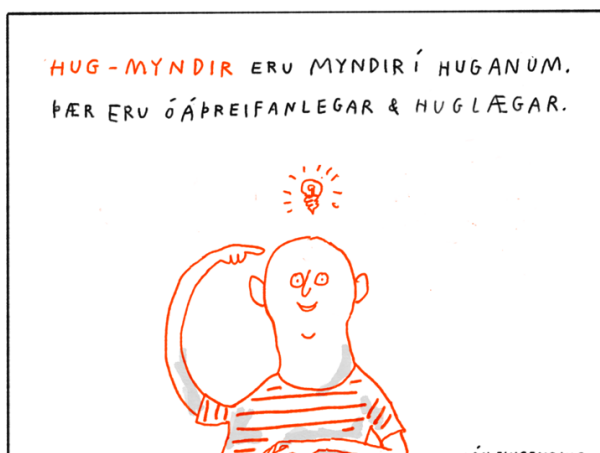 HUG-MYNDIR ERU MYNDIR Í HUGANUM.
ÞÆR ERU ÓÁÞREIFANLEGAR & HUGLÆGAR.